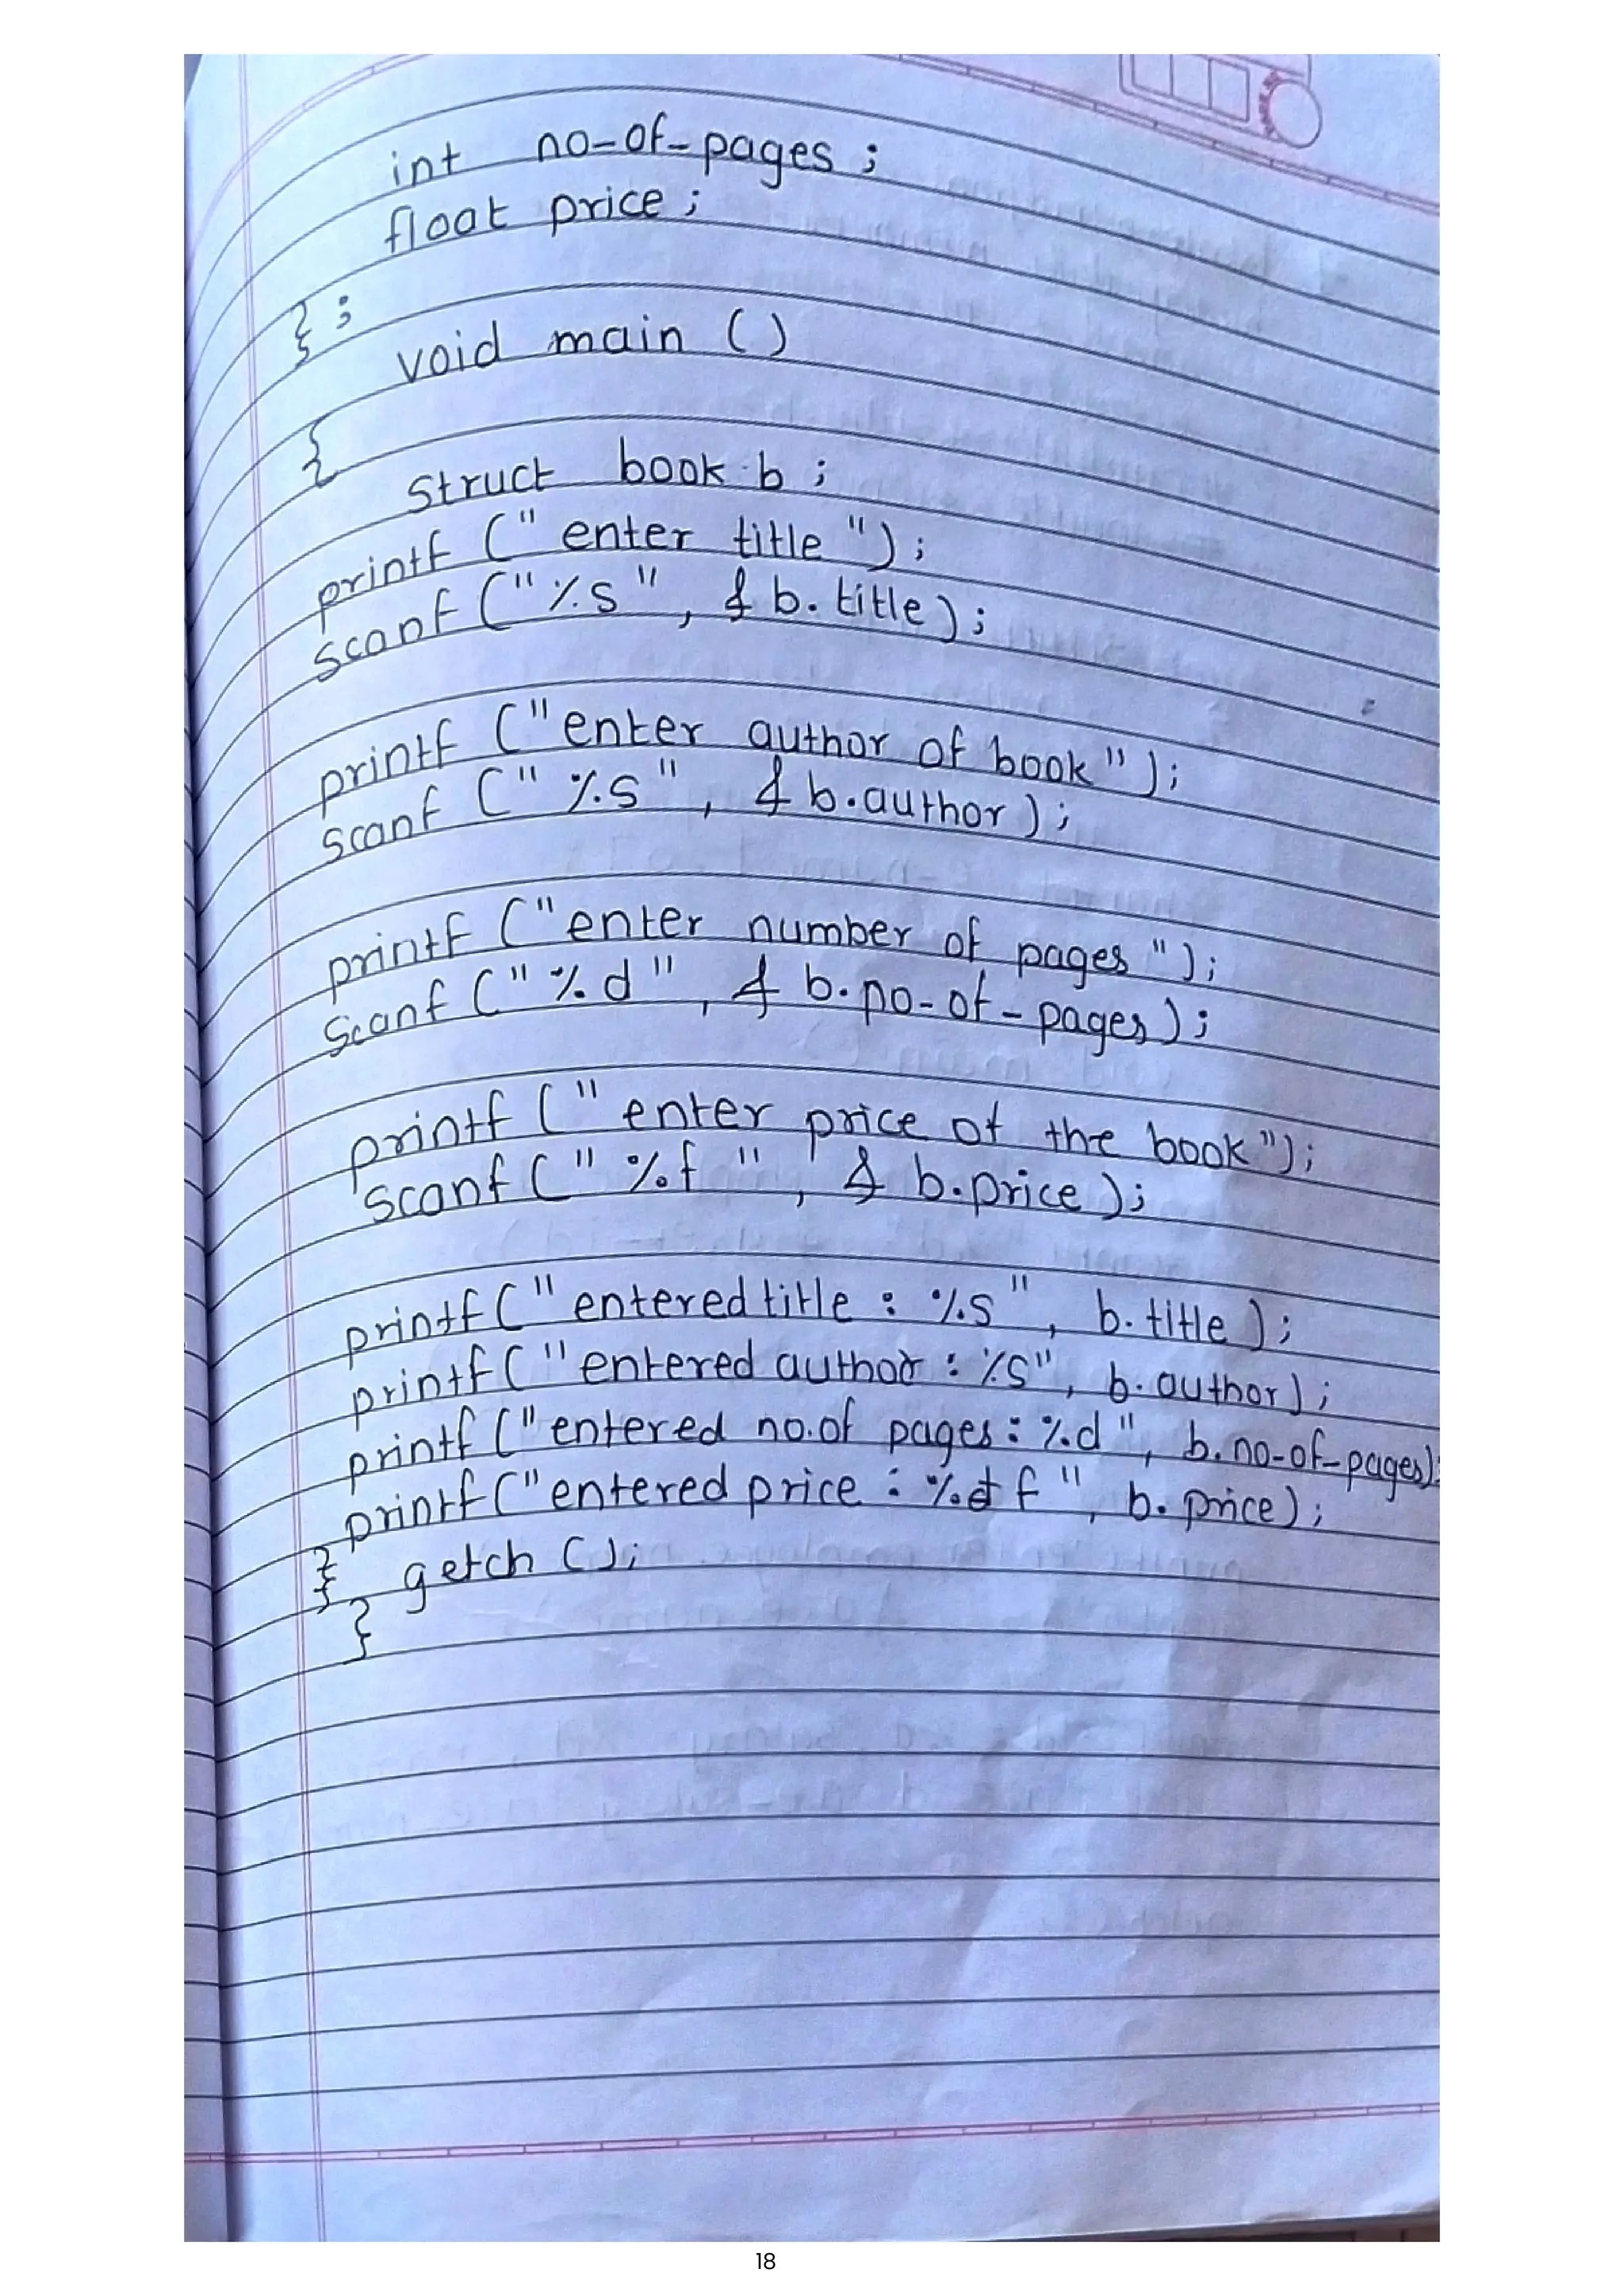 int no-of-pages ;
float price ;
} ;
void main ()
{
Struct book b ;
printf (" enter title ") ;
scanf ("%s" , & b. title) ;
printf ("enter author of book") ;
scanf (" %s" , & b.author) ;
printf ("enter number of pages ") ;
Scanf ("%d" , & b.no-of-pages) ;
printf (" enter price of the book") ;
scanf (" %f " , & b.price) ;
printf (" entered title : %s" , b. title ) ;
printf ("entered author : %s" , b. author) ;
printf ("entered no.of pages : %d " , b. no-of-pages);
printf ("entered price : %d f " , b. price) ;
} getch () ;
}
18